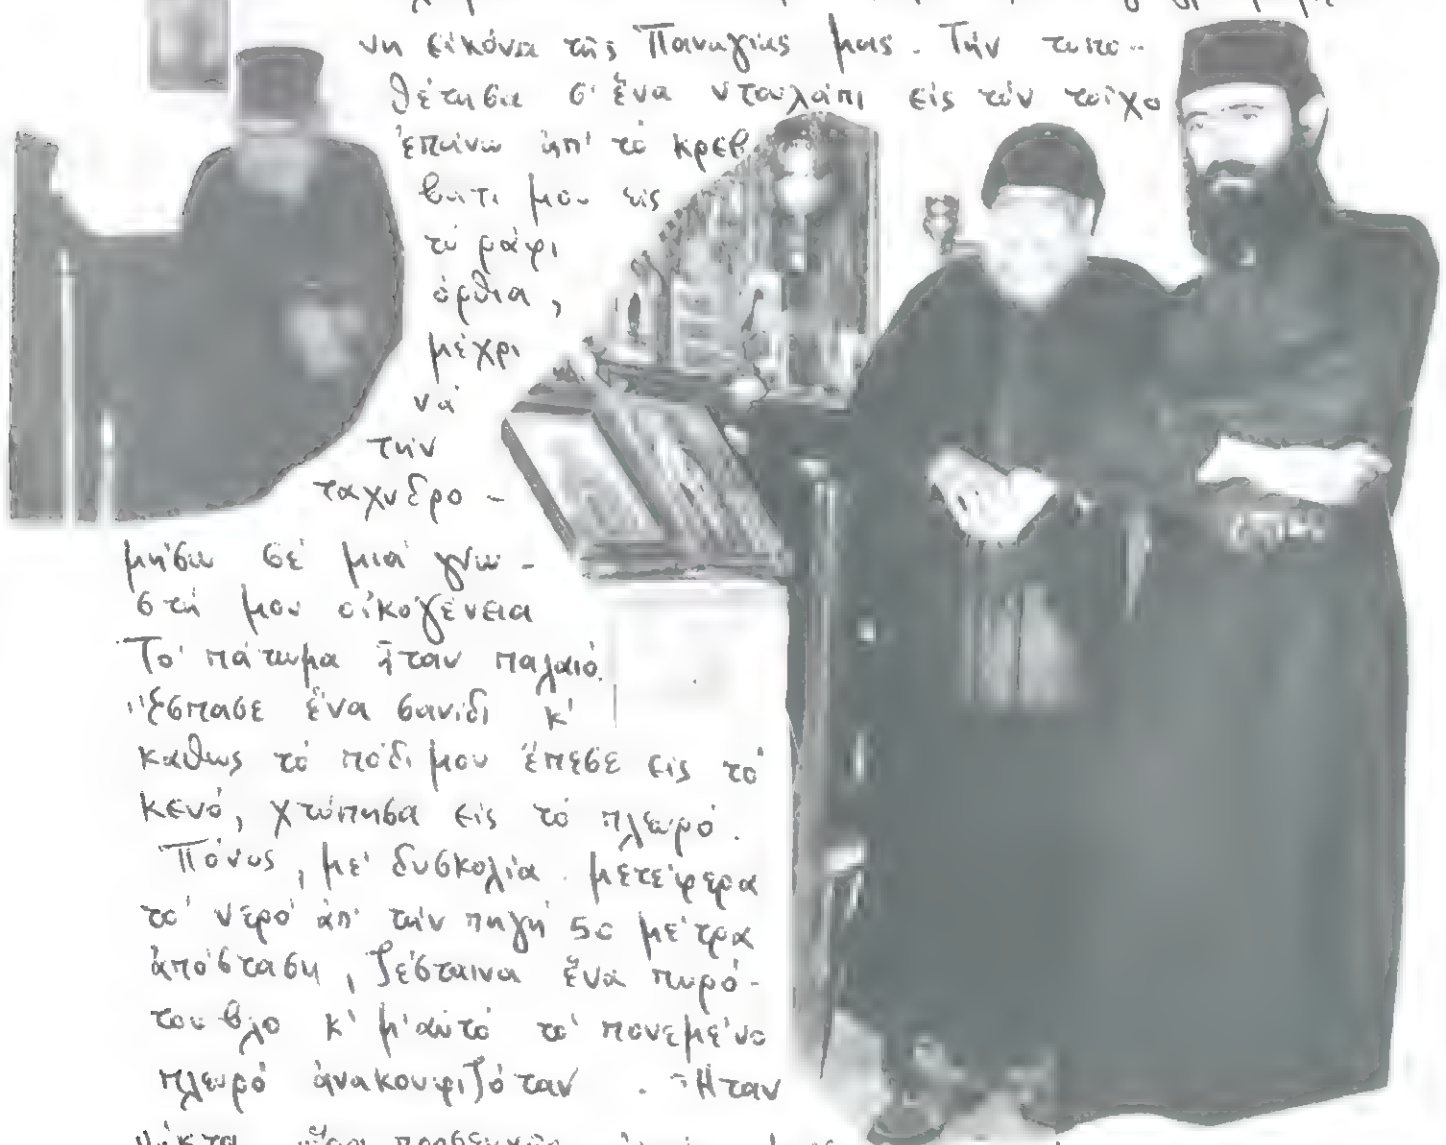 νη εἰκόνα τῆς Παναγίας μας. Τήν τοπο-
θέτησα σ' ἕνα ντουλάπι εἰς τόν τοῖχο
ἐπάνω ἀπ' τό κρεβ
βάτι μου εἰς
τό ράφι
ὄρθια,
μέχρι
νά
τήν
ταχυδρο-
μήσω σέ μιά γνω-
στή μου οἰκογένεια
Τό πάτωμα ἦταν παλαιό.
ἔσπασε ἕνα σανίδι κ'
καθώς τό πόδι μου ἔπεσε εἰς τό
κενό, χτύπησα εἰς τό πλευρό.
Πόνος, μέ δυσκολία μετέφερα
τό νερό ἀπ' τήν πηγή 50 μέτρα
ἀπόσταση, ζέσταινα ἕνα πυρό-
τουβλο κ' μ' αὐτό τό πονεμένο
πλευρό ἀνακουφιζόταν. Ἦταν
νύκτα